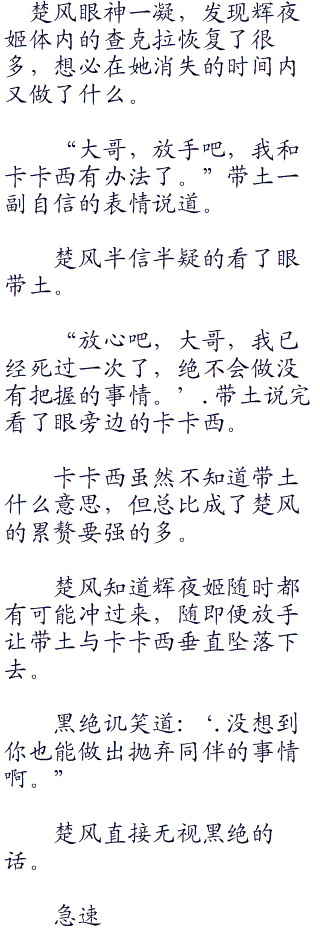 楚风眼神一凝，发现辉夜
姬体内的查克拉恢复了很
多，想必在她消失的时间内
又做了什么。
“大哥，放手吧，我和
卡卡西有办法了。”带土一
副自信的表情说道。
楚风半信半疑的看了眼
带土。
“放心吧，大哥，我已
经死过一次了，绝不会做没
有把握的事情。’.带土说完
看了眼旁边的卡卡西。
卡卡西虽然不知道带土
什么意思，但总比成了楚风
的累赘要强的多。
楚风知道辉夜姬随时都
有可能冲过来，随即便放手
让带土与卡卡西垂直坠落下
去。
黑绝讥笑道：‘.没想到
你也能做出抛弃同伴的事情
啊。”
楚风直接无视黑绝的
话。
急速